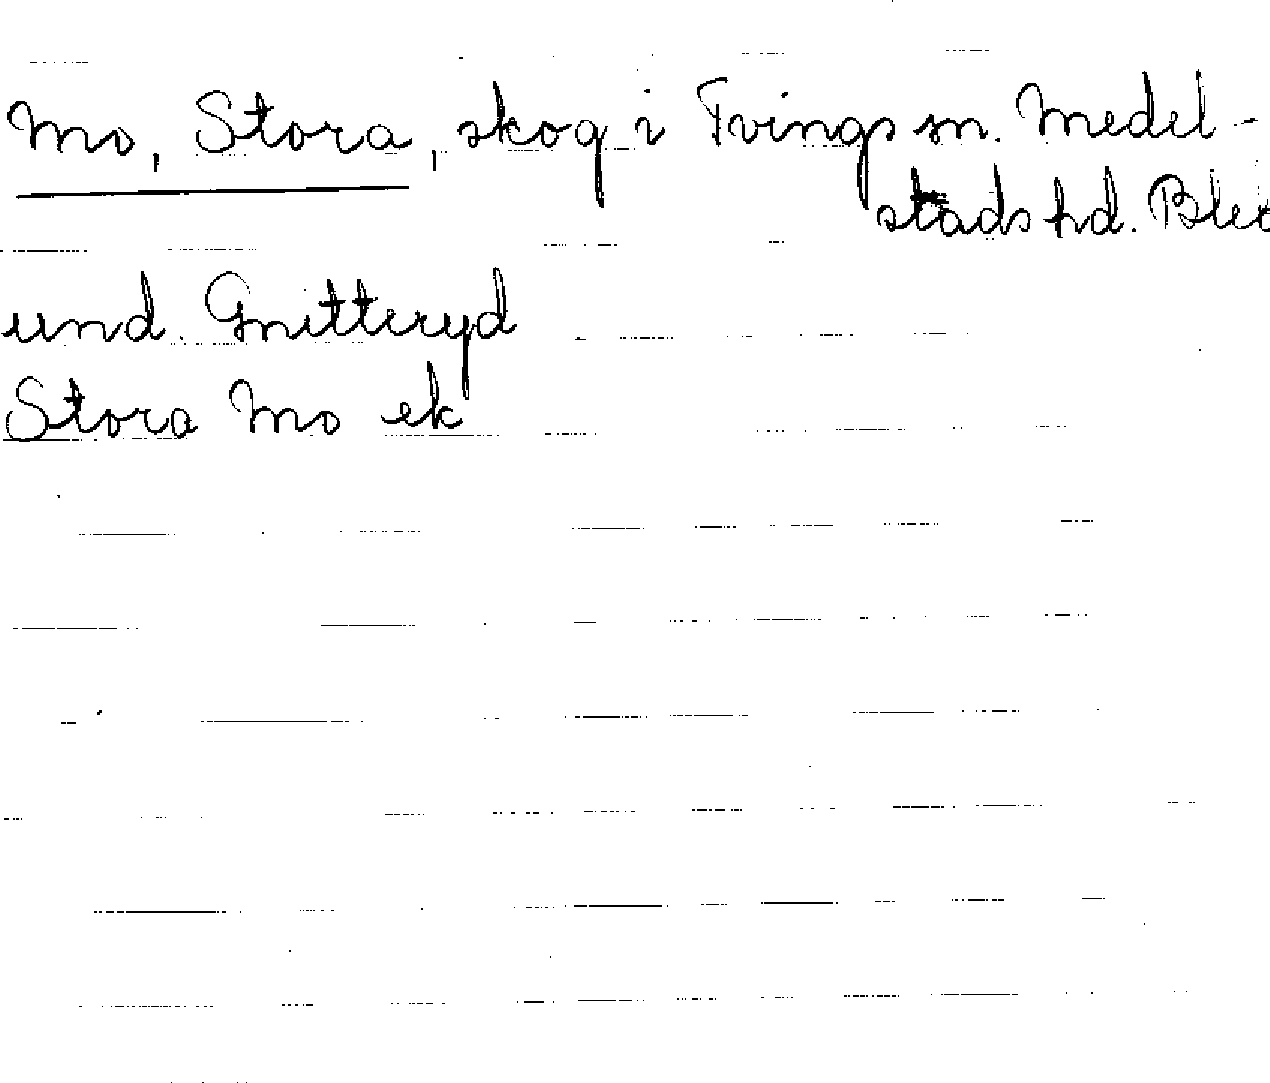 Mo, Stora, skog i Tvings sn. Medel-
stads hd. Blek
und. Gnitteryd
Stora Mo ek